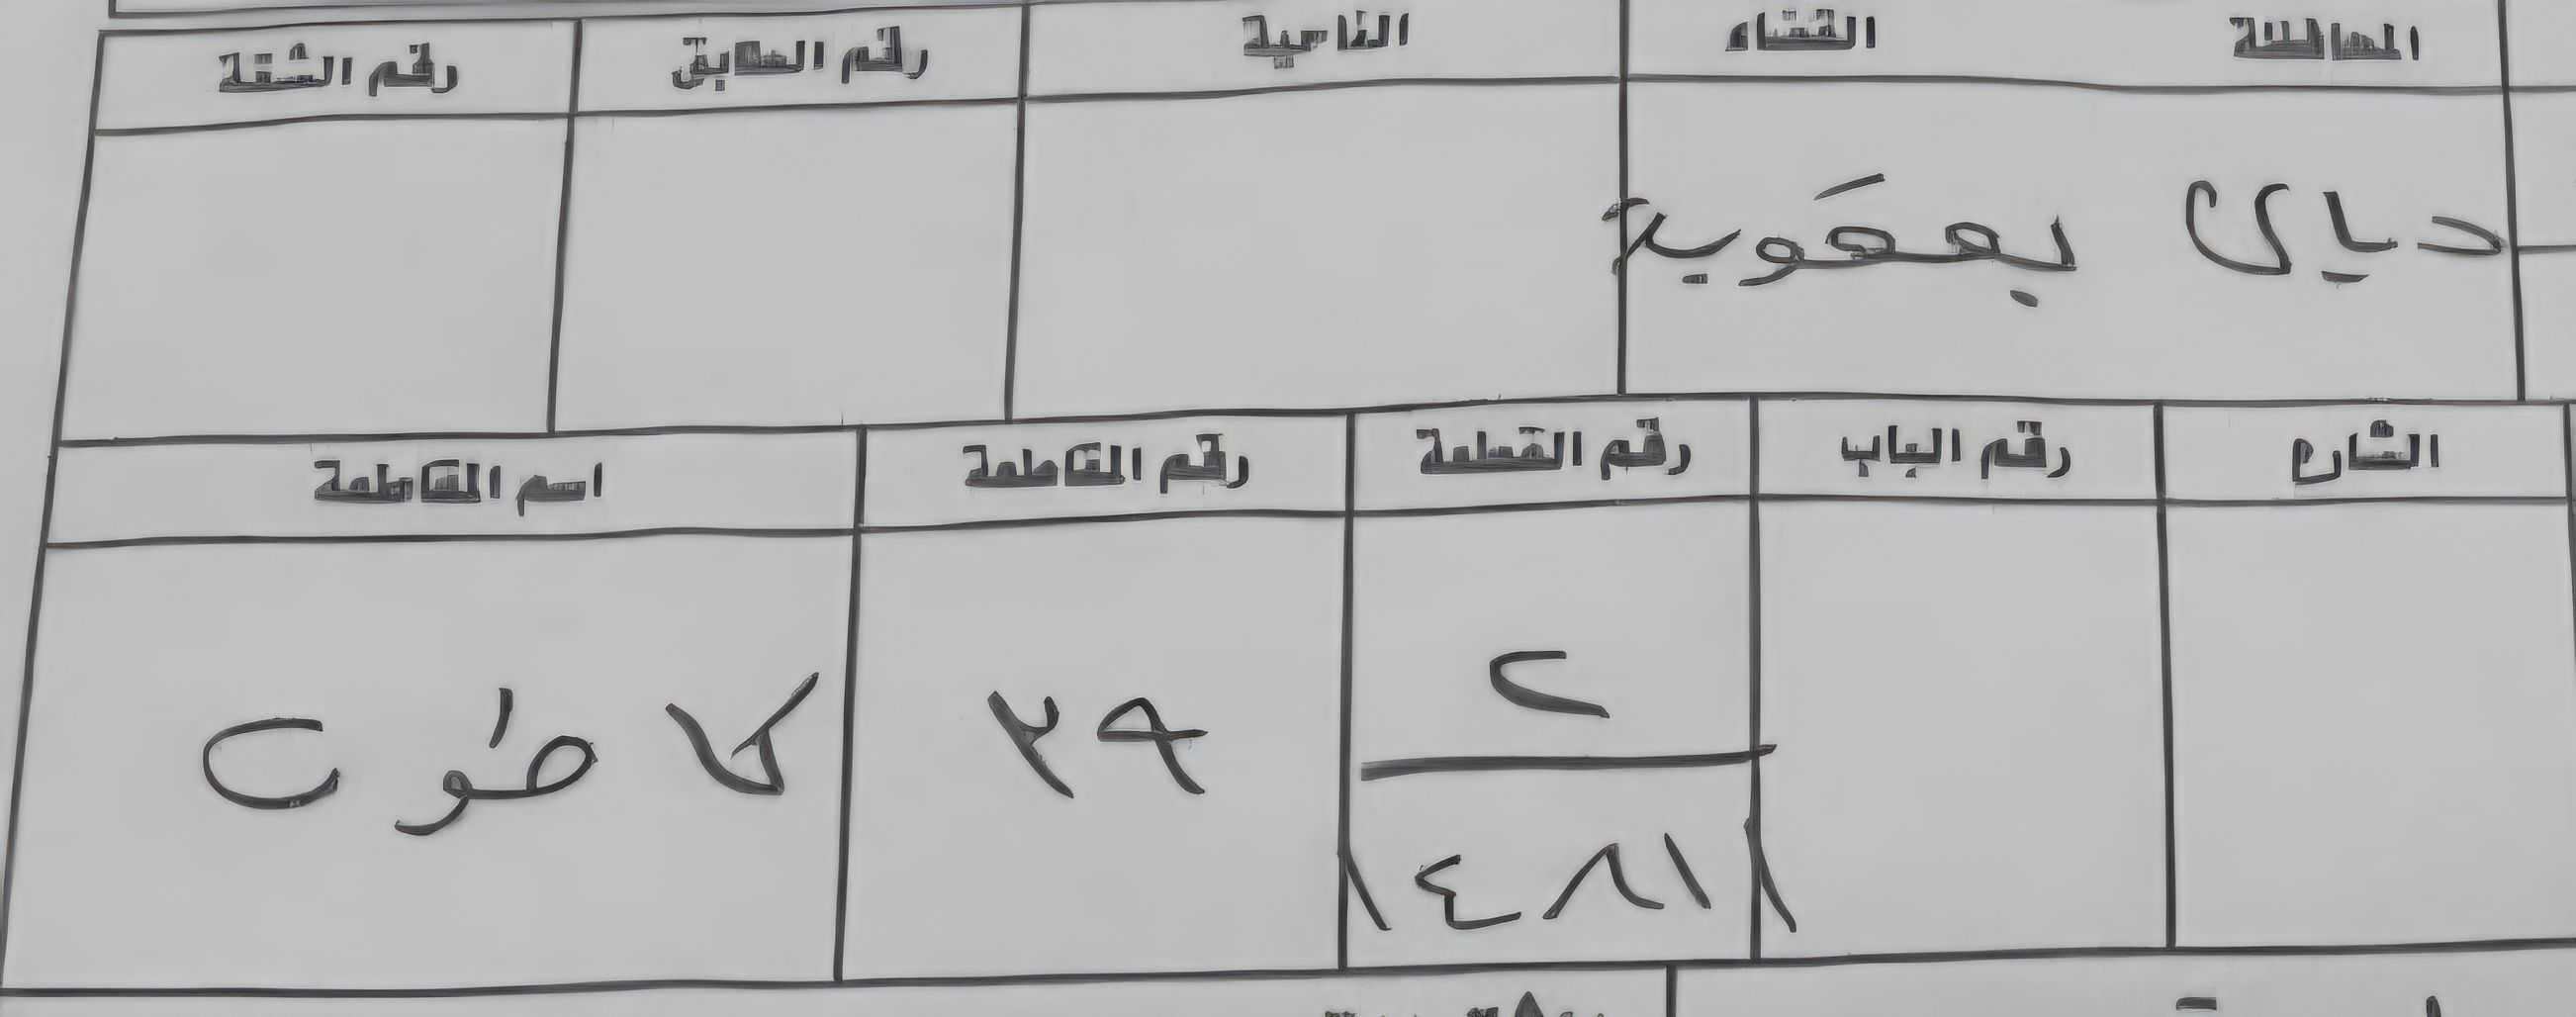 المحافظة القضاء الناحية رقم الطابق رقم الشقة
ديالى بعقوبة
الشارع رقم الباب رقم القطعة رقم المقاطعة اسم المقاطعة
٢
٣٩ كاطون
١٤٨١١